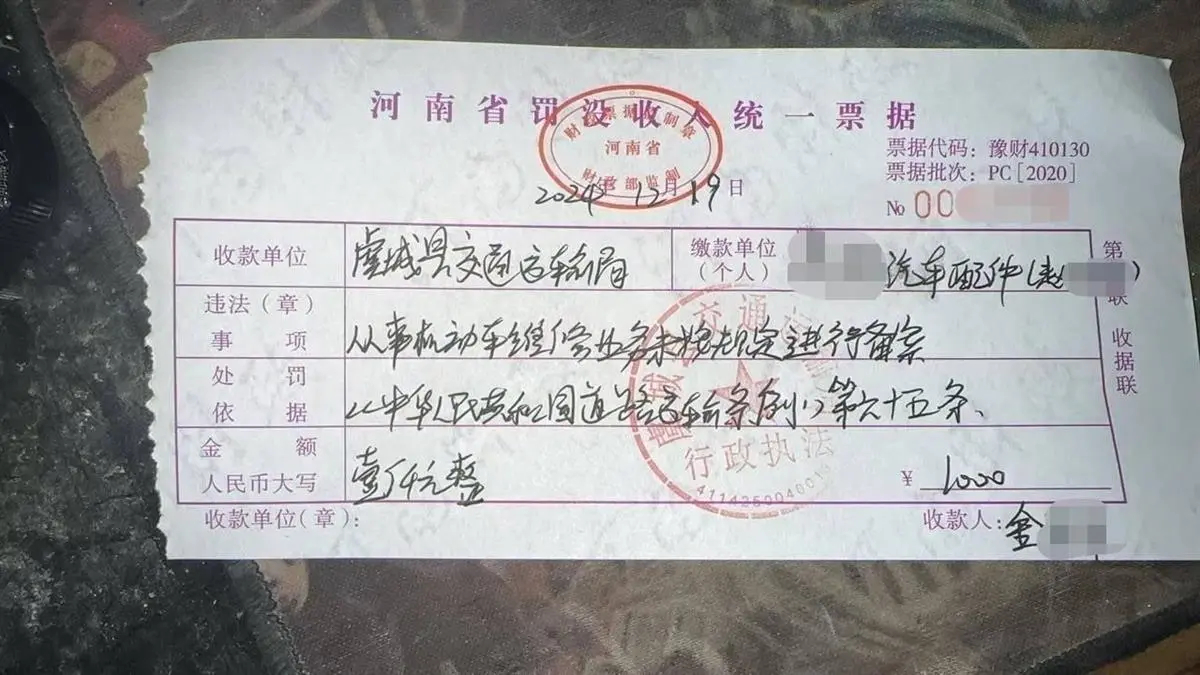 河南省罚没收入统一票据
财政票据监制章
河南省
财政部监制
票据代码：豫财410130
票据批次：PC［2020］
2024 12月19日
№ 00
收款单位 虞城县交通运输局 缴款单位（个人） 汽车配件(赵 )
违法（章）事项 从事机动车维修业务未按规定进行备案
处罚依据 《中华人民共和国道路运输条例》第六十五条、
金额人民币大写 壹仟元整 ￥ 1000
收款单位（章）： 收款人：金
第 联 收据联
虞城 交通
行政执法